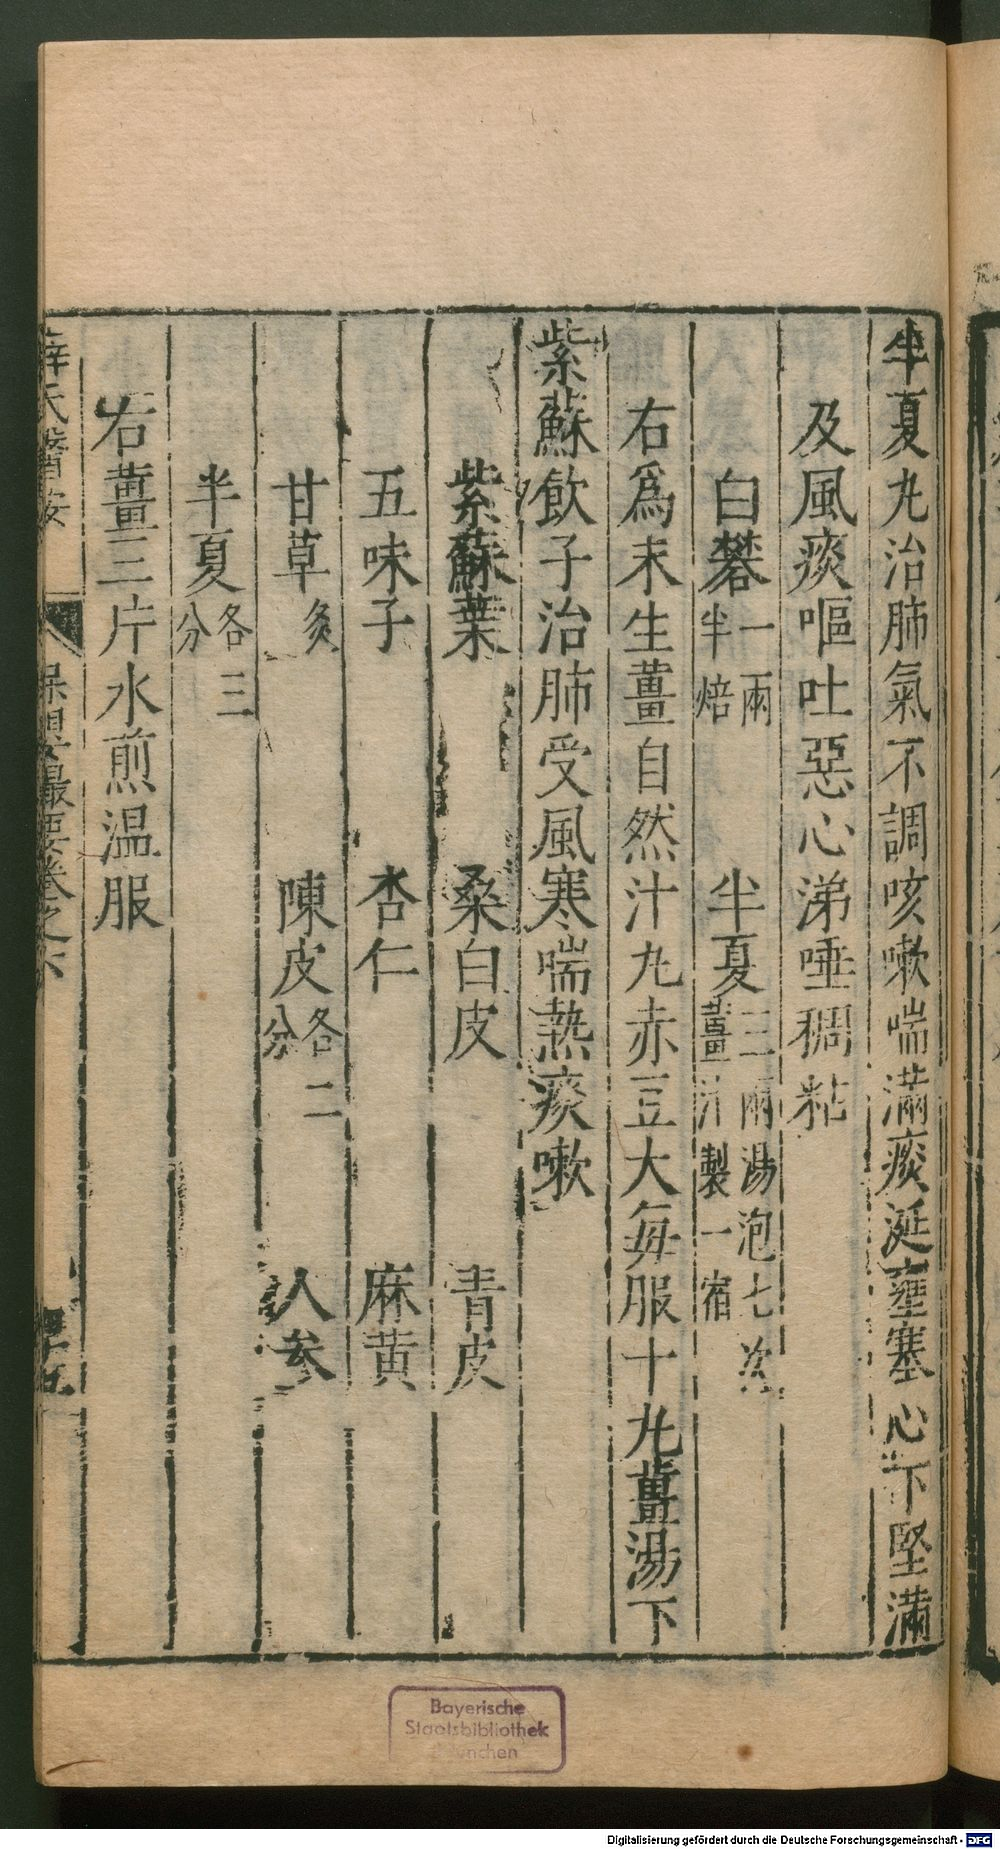 半夏丸治肺氣不調咳嗽喘滿痰涎壅塞心下堅滿
及風痰嘔吐惡心涕唾稠粘
白礬一兩半焙 半夏三兩湯泡七次薑汁製一宿
右爲末生薑自然汁丸赤豆大每服十丸薑湯下
紫蘇飲子治肺受風寒喘熱痰嗽
紫蘇葉 桑白皮 青皮
五味子 杏仁 麻黄
甘草炙 陳皮各二分 人参
半夏各三分
右薑三片水煎温服
薛氏醫按 保嬰撮要卷之六
Bayerische
Staatsbibliothek
München
Digitalisierung gefördert durch die Deutsche Forschungsgemeinschaft - DFG